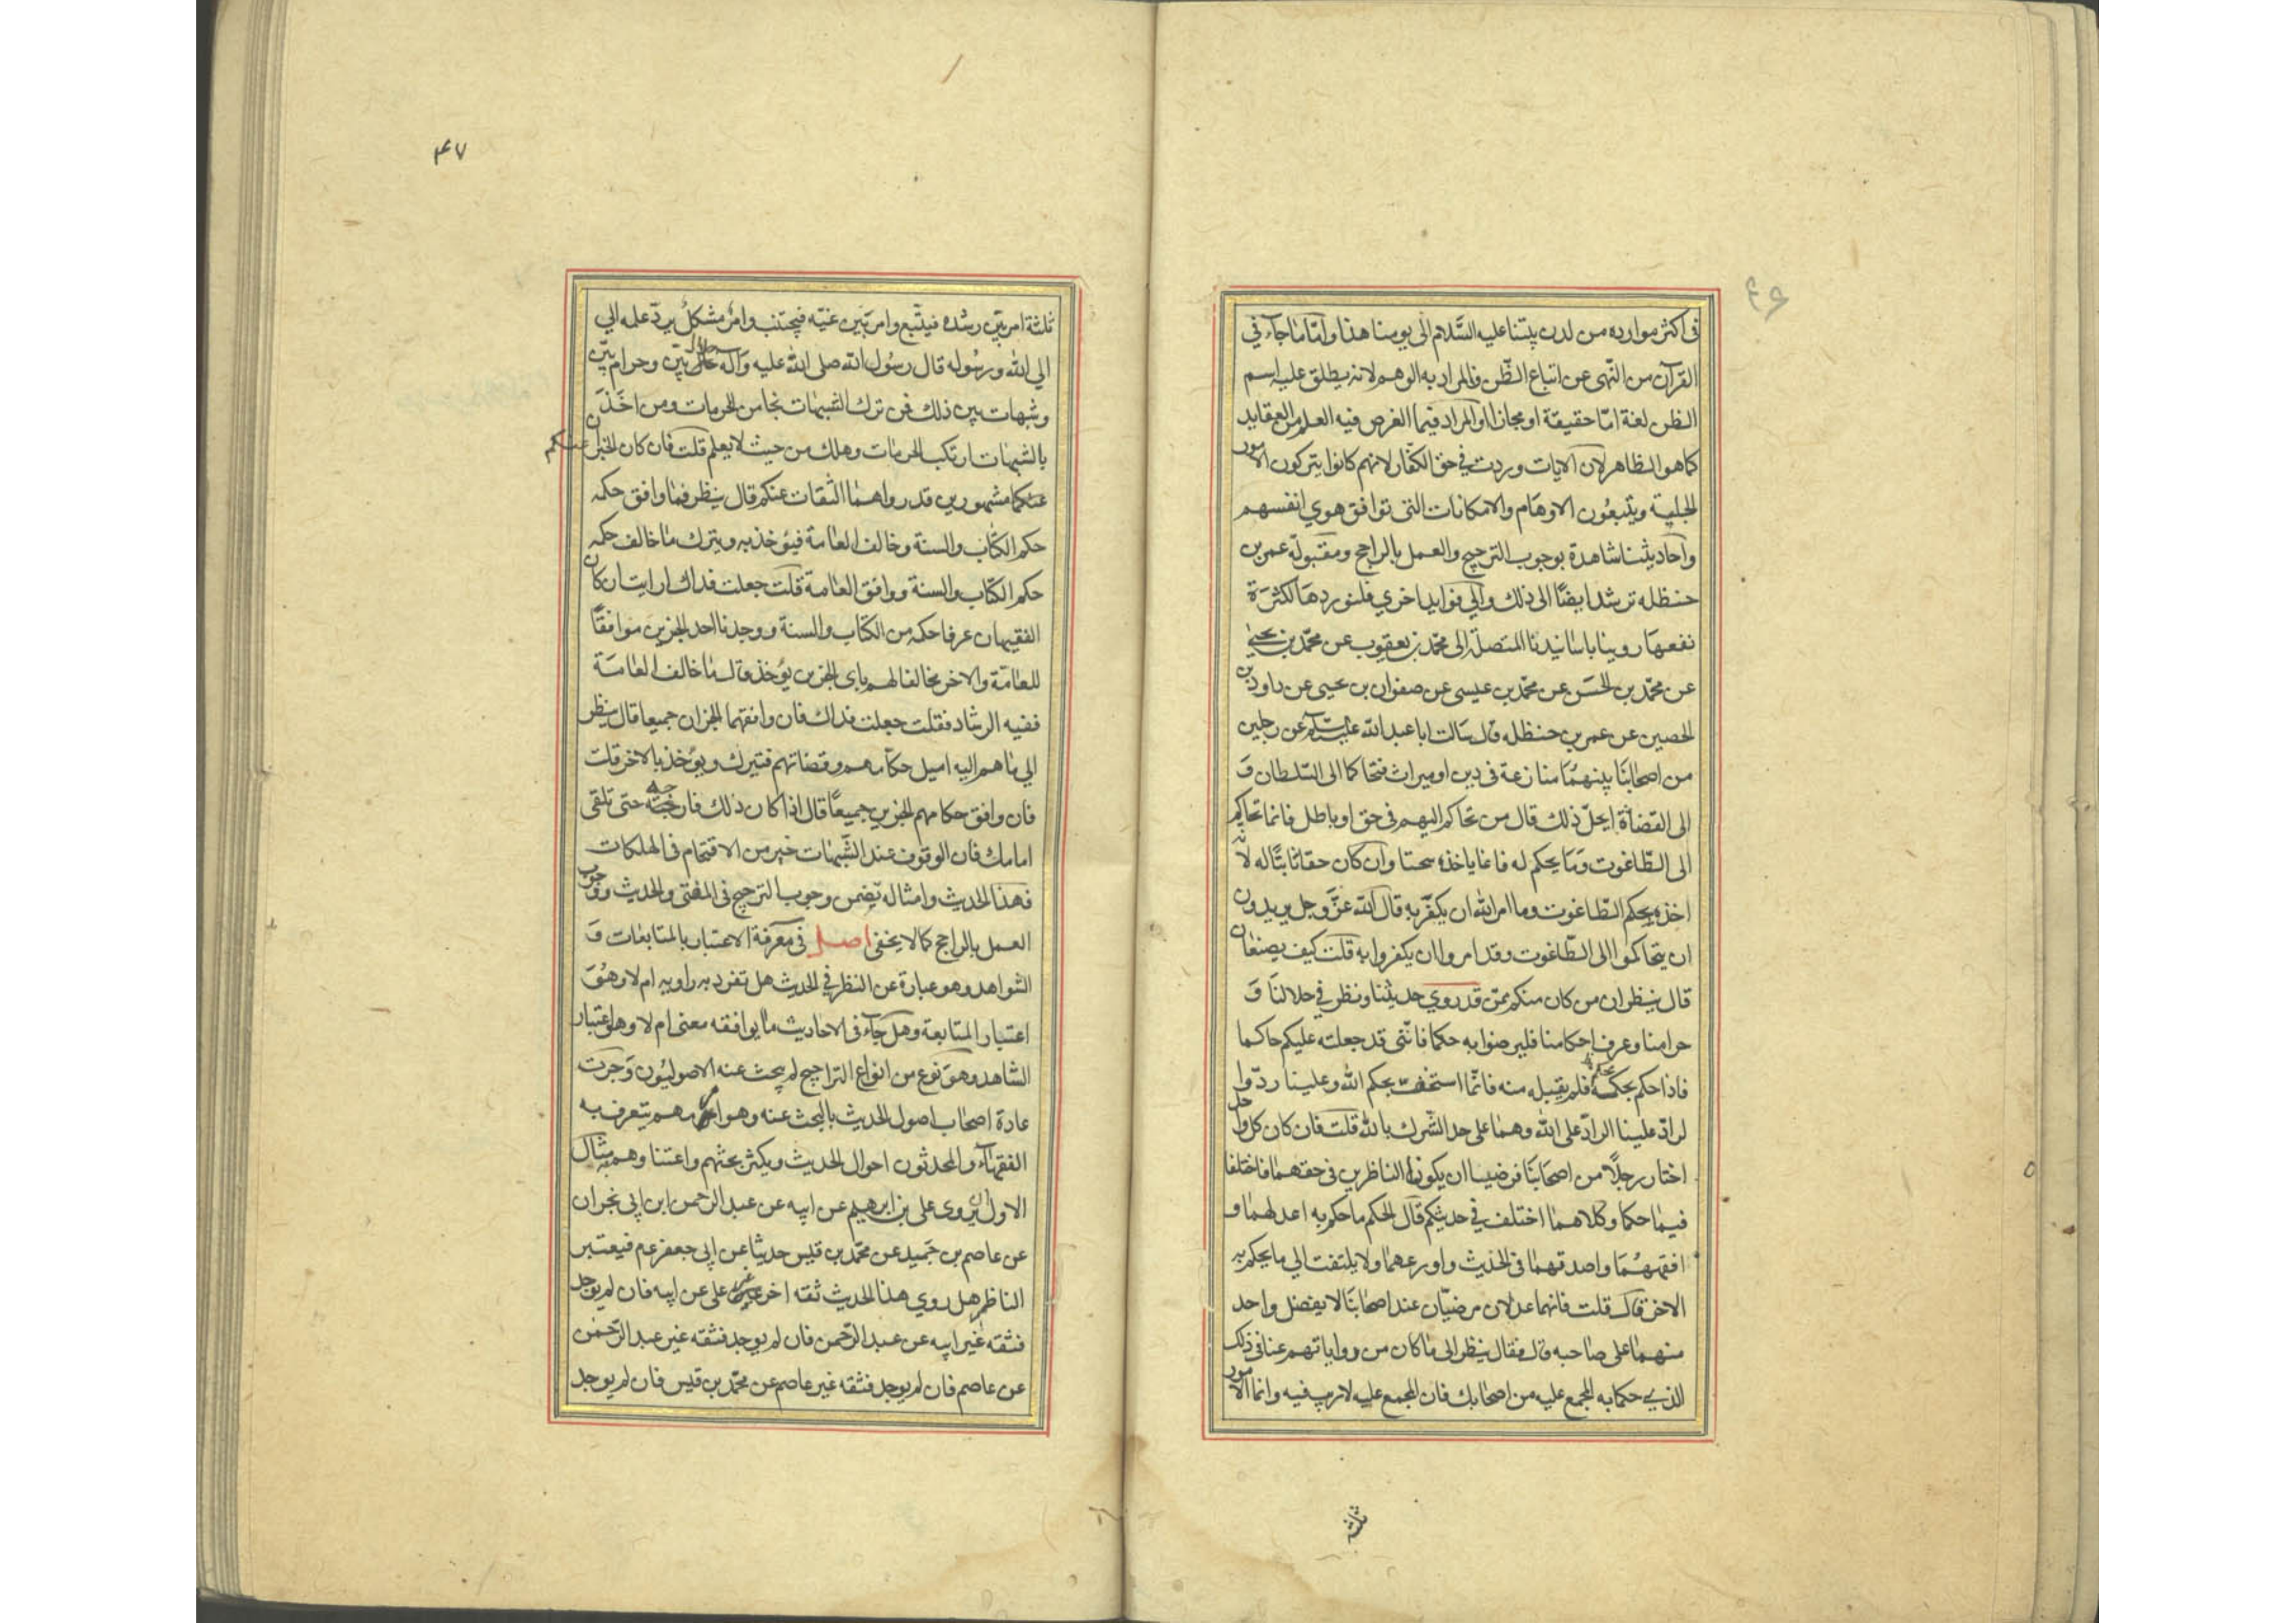 ۴۶
في اكثر موارده من لدن نبينا عليه السَّلام الى يومنا هذا وامّا ما جاء في
القرآن من النّهى عن اتباع الظّن فالمراد به الوهم لانه يطلق عليه اسم
الظن لغة امّا حقيقة او مجازا او المراد فيما الغرض فيه العلم من العقايد
كما هو الظاهر لان الايات وردت في حق الكفّار لانهم كانوا يتركون الامور
الجلية ويتبعُون الاوهَام والامكانات التى توافق هوي انفسهم
واحاديثنا شاهدة بوجوب الترجيح والعمل بالراجح ومقبولة عمر بن
حنظله ترشد ايضًا الى ذلك والي فوايد اخري فلنوردهَا لكثرَة
نفعهَا روينا باسَانيدنا المتصلة الى محمّد بن يعقوب عن محمّد بن يحيىٰ
عن محمّد بن الحسَن عن محمّد بن عيسى عن صفوان بن يحيى عن داود بن
الحصين عن عمر بن حنظله قال سَالت ابا عبد الله عليه السّلم عن رجلين
من اصحابنَا بينهمُا منازعة فى دين او ميراث فتحاكما الى السّلطان وَ
الى القضَاة ايحلّ ذلك قال من تحاكم اليهم فى حق او باطل فانما تحاكم
الى الطّاغوت وَمَا يحكم له فانما ياخذه سحتا وان كان حقا ثابتًا له لانه
اخذه بحكم الطّاغوت وما امر الله ان يكفر به قال الله عزّ وجل يريدون
ان يتحاكموا الى الطّاغوت وقد امروا ان يكفروا به قلت كيف يصنعان
قال ينظران من كان منكم ممّن قد روي حديثنا ونظر في حلالنَا وَ
حرامنا وعرف احكامنا فليرضوا به حكما فانّنى قد جعلته عليكم حاكما
فاذا حكم بحكمنا فلم يقبله منه فانّما استخفّ بحكم الله وعلينا ردّ وا
لرادّ علينا الرادّ على الله وهمٰا على حد الشّرك بالله قلت فان كان كل واحد
اختار رجلًا من اصحَابنَا فرضيا ان يكونا الناظرين فى حقهمٰا فاختلفا
فيمٰا حكما وكلاهمٰا اختلف في حديثكم قال الحكم ما حكم به اعدلهمٰا و
افقههُمَا واصدقهمٰا فى الحديث واورعهمٰا ولا يلتفت الي ما يحكم به
الاخر قال قلت فانهما عدلان مرضيّان عند اصحابنَا لا يفضل واحد
منهمٰا على صٰاحبه قال فقال ينظر الى مٰا كان من رواياتهم عنا فى ذلك
الذي حكما به المجمع عليه من اصحٰابك فان المجمع عليه لا ريب فيه وانما الامور
ثلثة
۴۷
ثلثة امر بيّن رشده فيتّبع وامر بَيّن غيّه فيجتنب وامر مشكل يردّ علمه الي
الي الله ورسُوله قال رسُول الله صلى الله عليه وآله حلال بيّن وحرام بيّن
وشبهات بين ذلك فمن ترك الشبهَات نجا من المحرمات ومن اخَذَ
بالشبهَات ارتكب المحرمَات وهلك من حيث لا يعلم قلت فان كان الخبران عنكم
عنكما مشهورين قد رواهمٰا الثقات عنكم قال ينظر فمٰا وافق حكمه
حكم الكتٰاب والسنة وخالف العٰامة فيؤخذ به ويترك مٰا خالف حكمه
حكم الكتٰاب والسنة ووافق العٰامة قلت جعلت فداك ارايت ان كان
الفقيهان عرفا حكمه من الكتاب والسنة ووجدنا احد الخبرين موافقًا
للعٰامّة والاخر مخالفا لهم باى الخبرين يؤخذ قال مٰا خالف العٰامّة
ففيه الرشاد فقلت جعلت فداك فان وافقهما الخبران جميعا قال ينظر
الي مٰا هم اليه اميل حكٰامهم وقضٰاتهم فتيرك ويؤخذ بالاخر قلت
فان وافق حكامهم الخبرين جميعًا قال اذا كان ذلك فارجئه حتى تلقى
امامك فان الوقوف عند الشّبهات خير من الاقتحام فى الهلكات
فهذا الحديث وامثاله يتضمن وجوب الترجيح فى المفتى والحديث ووجوب
العمل بالراجح كما لا يخفى اصل فى معرفة الاعتبار بالمتابعٰات وَ
الشواهد وهو عبارة عن النظر في الحديث هل تفرد به راويه ام لا وهُوَ
اعتبار المتابعة وهل جآء فى الاحٰاديث مٰا يوافقه معنى ام لا وهو اعتبار
الشاهد وهوَ نوع من انواع التراجيح لم يبحث عنه الاصوليُون وَجَرَت
عادة اصحٰاب اصول الحديث بالبحث عنه وهو امر مهم يتعرف به
الفقهآء والمحدثون احوال الحديث ويكثر بحثهم واعتناوهم به مثال
الاول ان يروى على بن ابرهيم عن ابيه عن عبد الرحمن ابن ابى نجران
عن عاصم بن حميد عن محمّد بن قيس حديثا عن ابى جعفر عم فيعتبر
الناظر هل روي هذا الحديث ثقه اخر غير على عن ابيه فان لم يوجد
فثقه غير ابيه عن عبد الرّحمن فان لم يوجد فثقه غير عبد الرّحمٰن
عن عاصم فان لم يوجد فثقه غير عاصم عن محمّد بن قيس فان لم يوجد